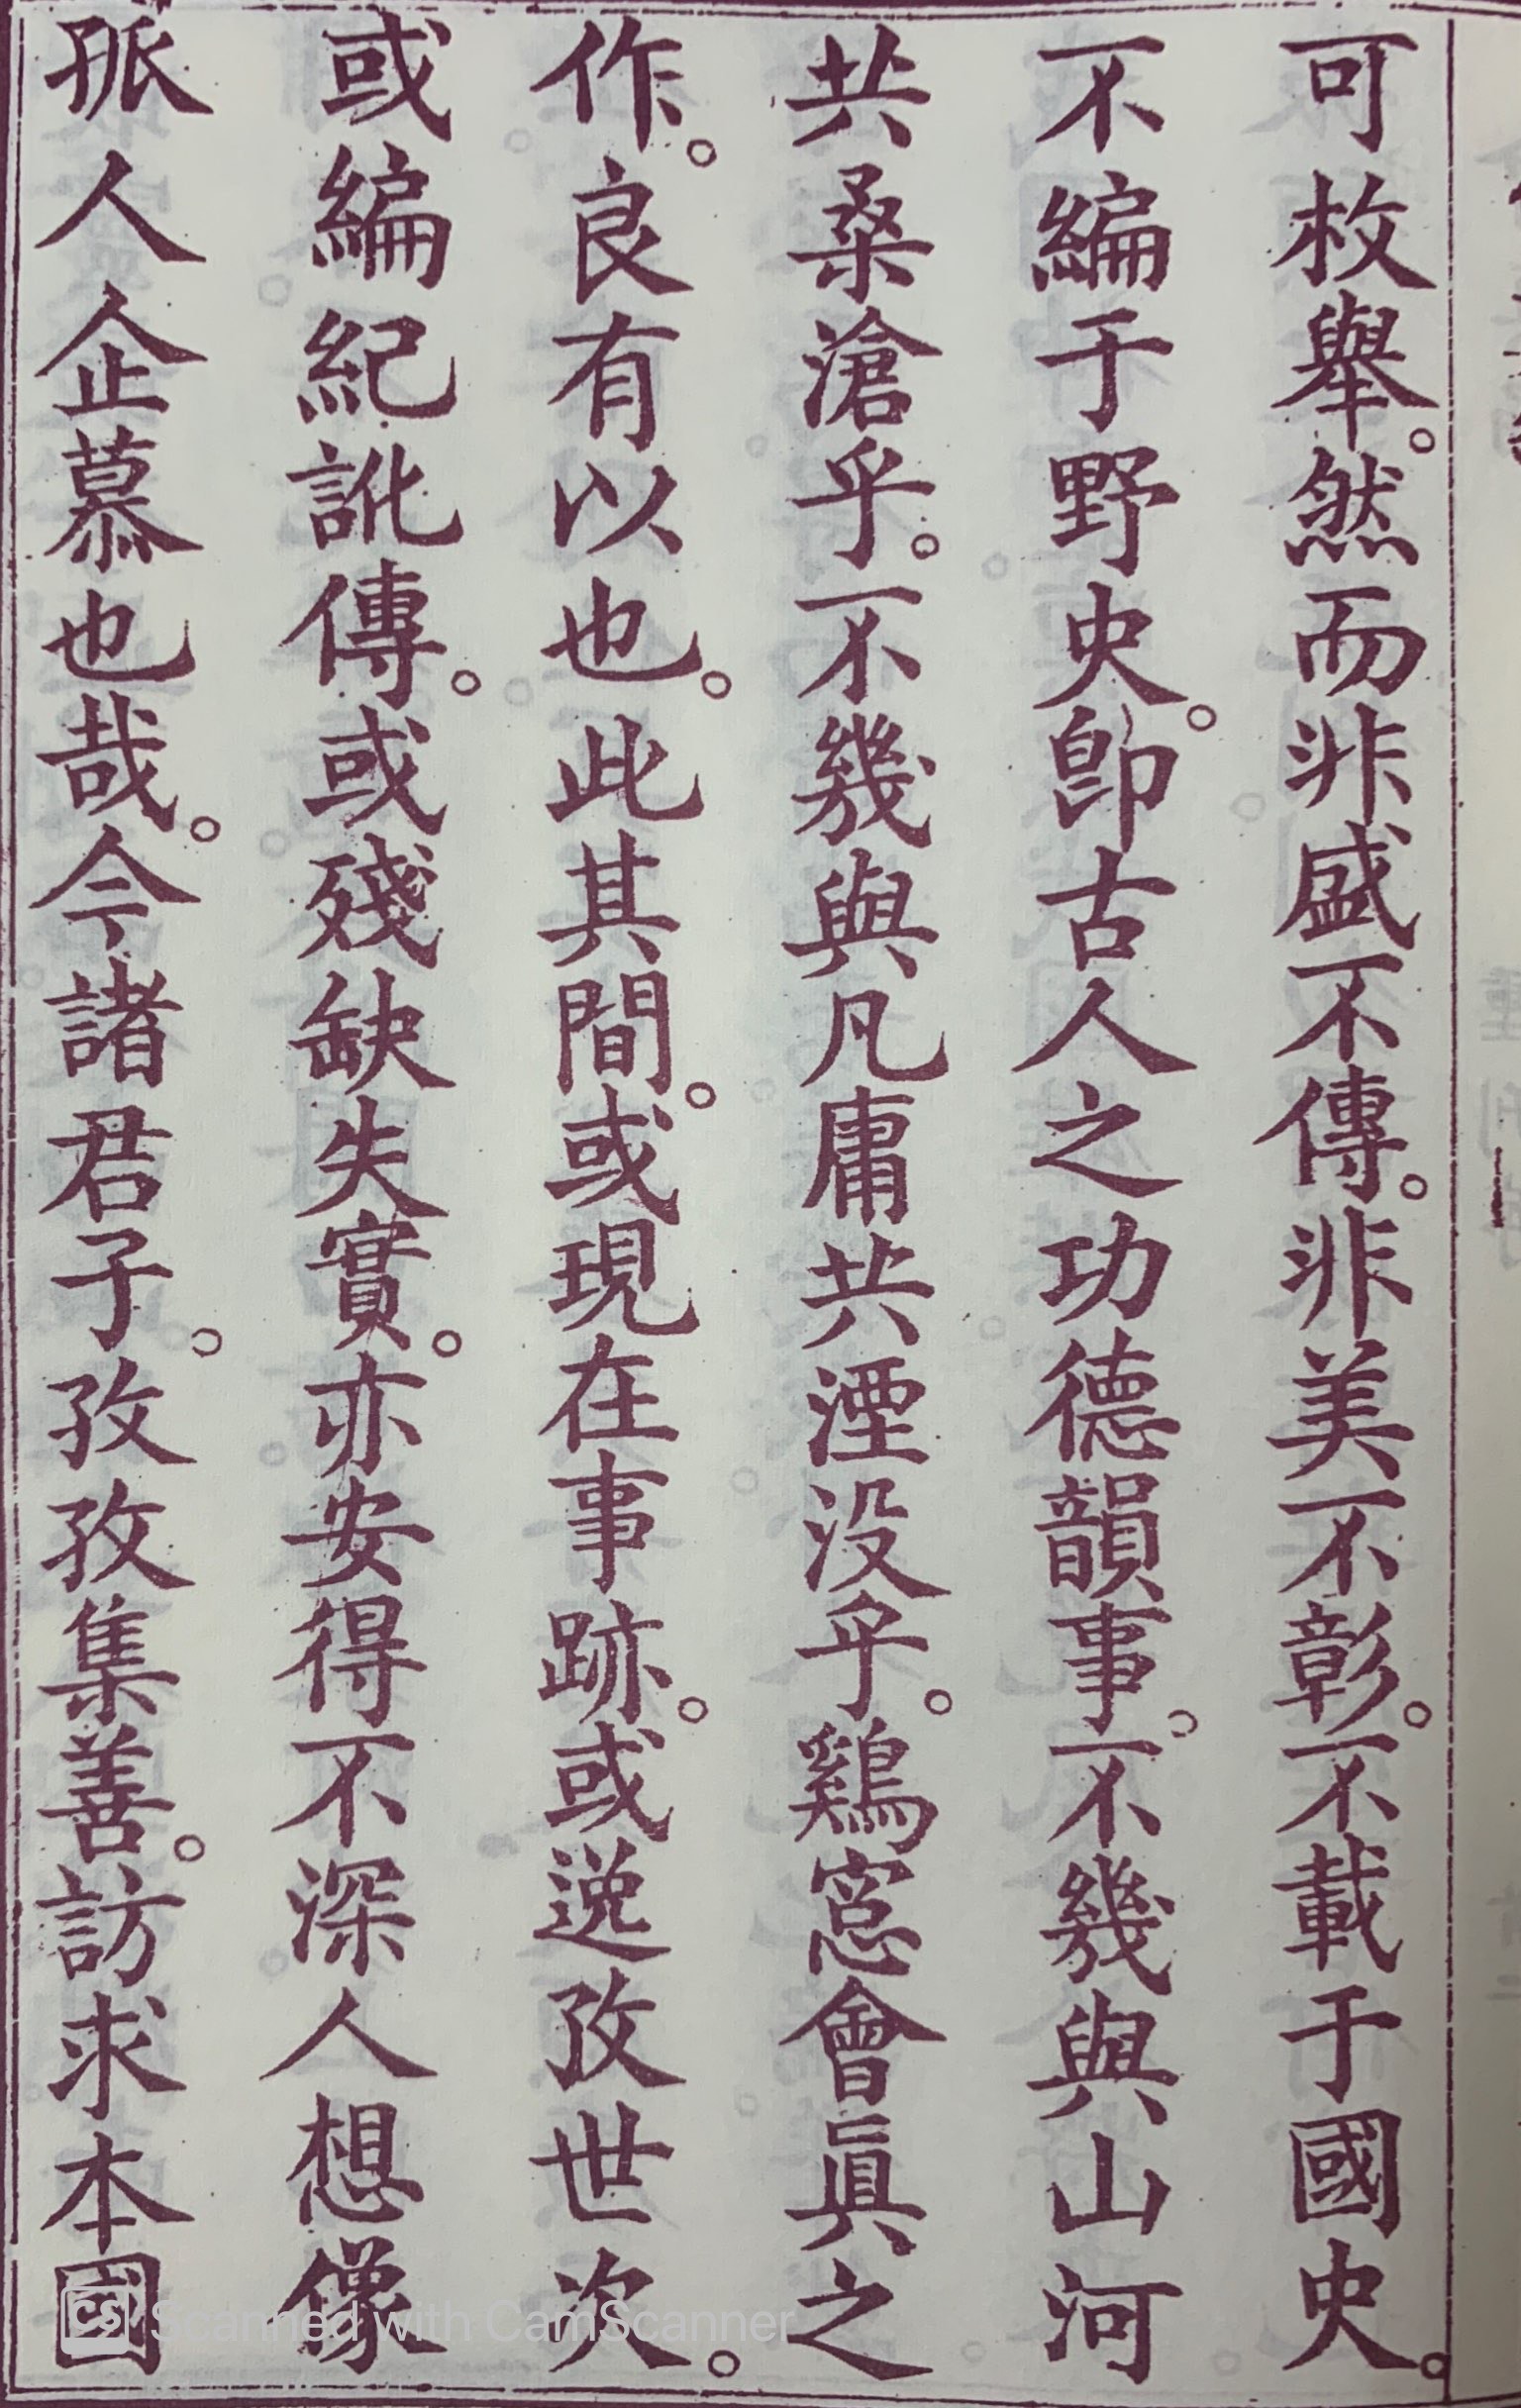 可枚舉。然而非盛不傳。非美不彰。不載于國史。
不編于野史。卽古人之功德韻事。不幾與山河
共桑滄乎。不幾與凡庸共湮没乎。鷄窓會眞之
作。良有以也。此其間。或現在事跡。或逆攷世次。
或編紀訛傳。或殘缺失實。亦安得不深人想像
孤人企慕也哉。今諸君子。孜孜集善。訪求本國
Scanned with CamScanner